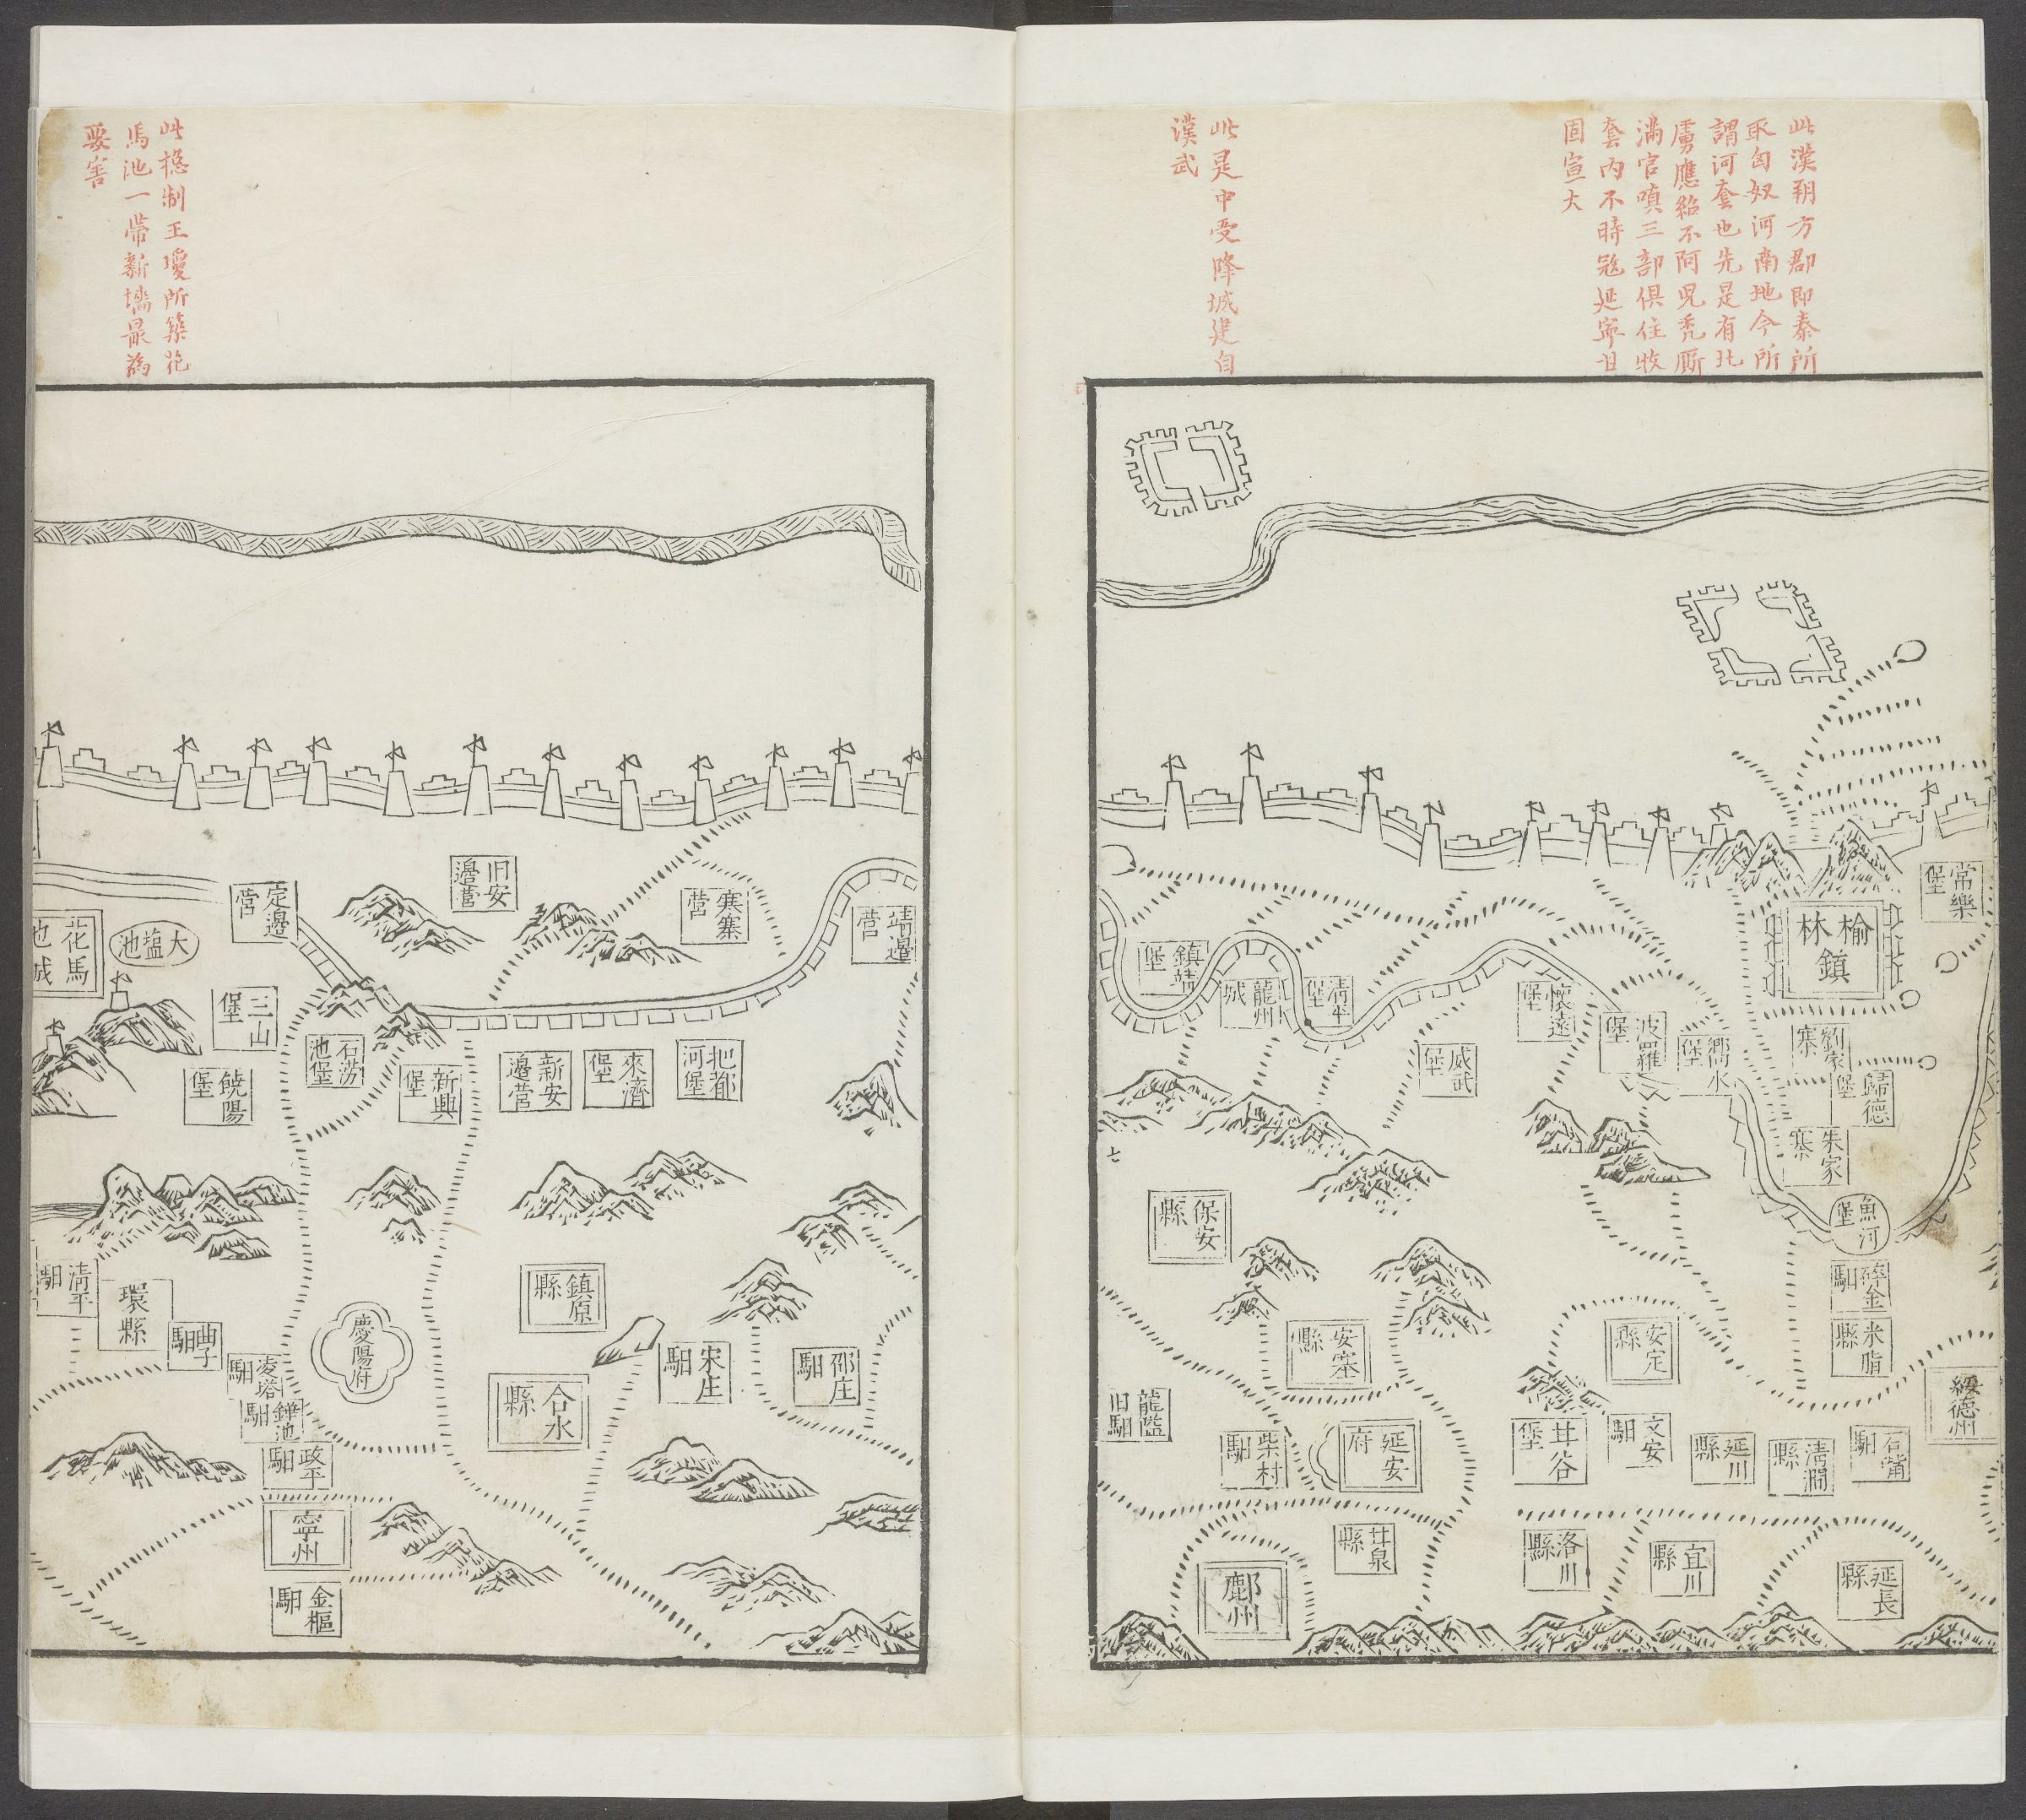 此漢朔方郡即秦所
取匈奴河南地今所
謂河套也先是有北
虜應紹不阿児禿厮
滿官嗔三部俱住牧
套內不時寇延寧甘
固宣大
此是中受降城建自
漢武
常樂堡
榆林鎮
鎮靖堡
龍州城
清平堡
懷遠堡
波羅堡
響水堡
威武堡
劉家寨
歸德堡
朱家寨
魚河堡
保安縣
安塞縣
安定縣
米脂縣
綏德州
龍
旧馹
柴村馹
延安府
堡
文安馹
延川縣
清澗縣
廿泉縣
洛川縣
宜川縣
延長縣
鄜州
七
此捴制王瓊所築花
馬池一帶新墻最為
要害
定邉營
旧安邉營
寨營
靖邉營
花馬池城
大塩池
三山堡
饒陽堡
石澇池堡
新興堡
新安邉營
來濟堡
把都河堡
清平馹
環縣
曲子馹
慶陽府
鎮原縣
宋庄馹
邵庄馹
合水縣
政平馹
寧州